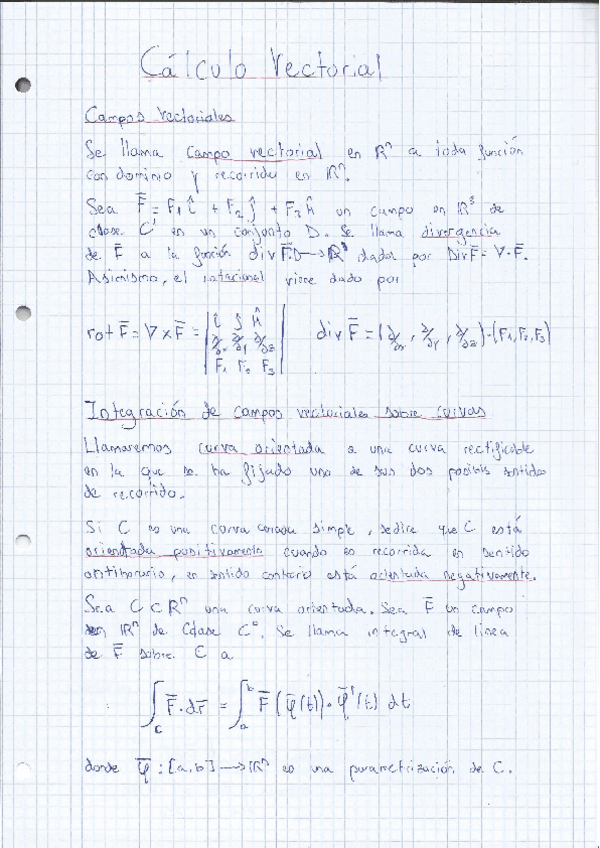 Cálculo Vectorial
Campos Vectoriales
Se llama campo vectorial en ℝⁿ a toda función
con dominio y recorrido en ℝⁿ.
Sea F̄ = F₁ î + F₂ ĵ + F₃ k̂ un campo en ℝ³ de
clase C¹ en un conjunto D. Se llama divergencia
de F̄ a la función div F̄: D → ℝ dada por Div F̄ = ∇·F̄.
Asimismo, el rotacional viene dado por
rot F̄ = ∇ × F̄ = | î ĵ k̂ |
| ∂/∂x ∂/∂y ∂/∂z |
| F₁ F₂ F₃ |
div F̄ = (∂/∂x, ∂/∂y, ∂/∂z)·(F₁, F₂, F₃)
Integración de campos vectoriales sobre curvas
Llamaremos curva orientada a una curva rectificable
en la que se ha fijado uno de sus dos posibles sentidos
de recorrido.
Si C es una curva cerrada simple, se dice que C está
orientada positivamente cuando es recorrida en sentido
antihorario, en sentido contrario está orientada negativamente.
Sea C ⊂ ℝⁿ una curva orientada. Sea F̄ un campo
en ℝⁿ de Clase C⁰. Se llama integral de línea
de F̄ sobre C a
∫_C F̄·dr̄ = ∫_a^b F̄(φ̄(t))·φ̄'(t) dt
donde φ̄: [a,b] → ℝⁿ es una parametrización de C.